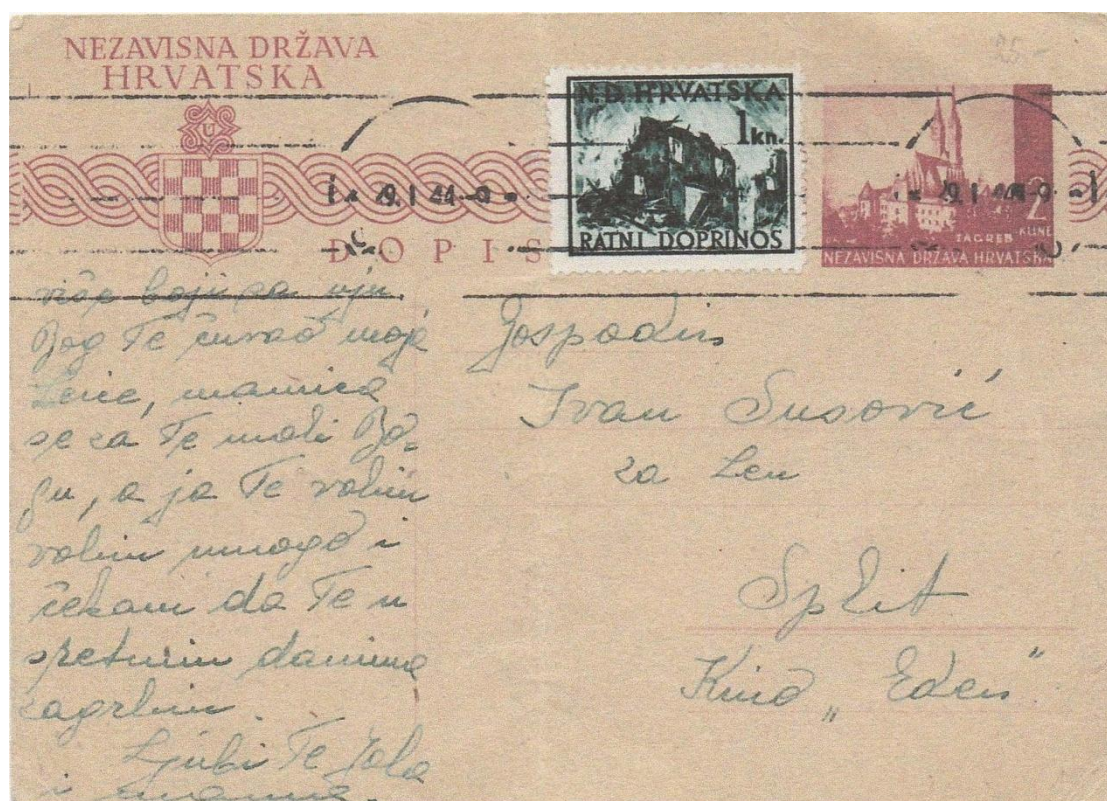 25.-
NEZAVISNA DRŽAVA
HRVATSKA
U
N.D. HRVATSKA
1 kn.
RATNI DOPRINOS
2
KUNE
ZAGREB
NEZAVISNA DRŽAVA HRVATSKA
29. I 44-9
29. I 44-9
DOPIS
više boju za nju
Bog Te čuvao moja
Lence, mamica
se za Te moli Bo-
gu, a ja Te volim
volim mnogo i
čekam da Te u
sretnim danima
zagrlim.
Ljubi Te Jola
i mamma.
Gospodin
Ivan Susović
za Len
Split
Kino „Eden"